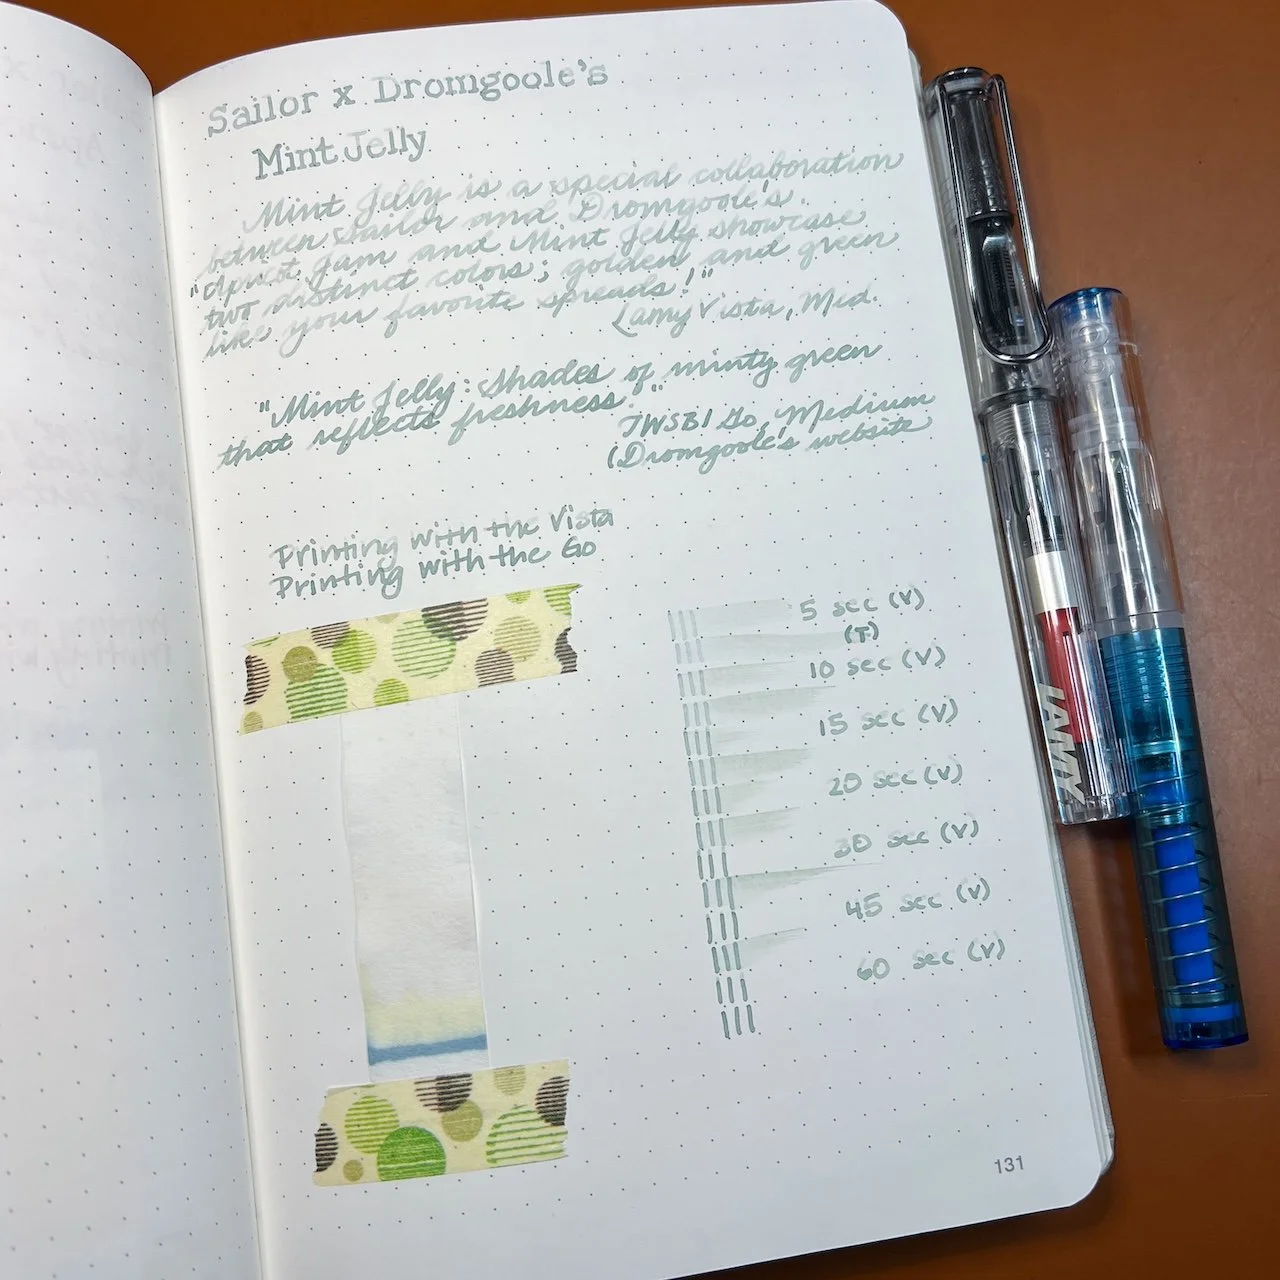 Sailor x Dromgoole's
Mint Jelly
Mint Jelly is a special collaboration
between Sailor and Dromgoole's.
"Apricot Jam and Mint Jelly showcase
two distinct colors; golden and green
like your favorite spreads!"
Lamy Vista, Med.
"Mint Jelly: Shades of minty green
that reflects freshness."
TWSBI Go, Medium
(Dromgoole's website
Printing with the Vista
Printing with the Go
5 sec (V)
(T)
10 sec (V)
15 sec (V)
20 sec (V)
30 sec (V)
45 sec (V)
60 sec (V)
131
LAMY